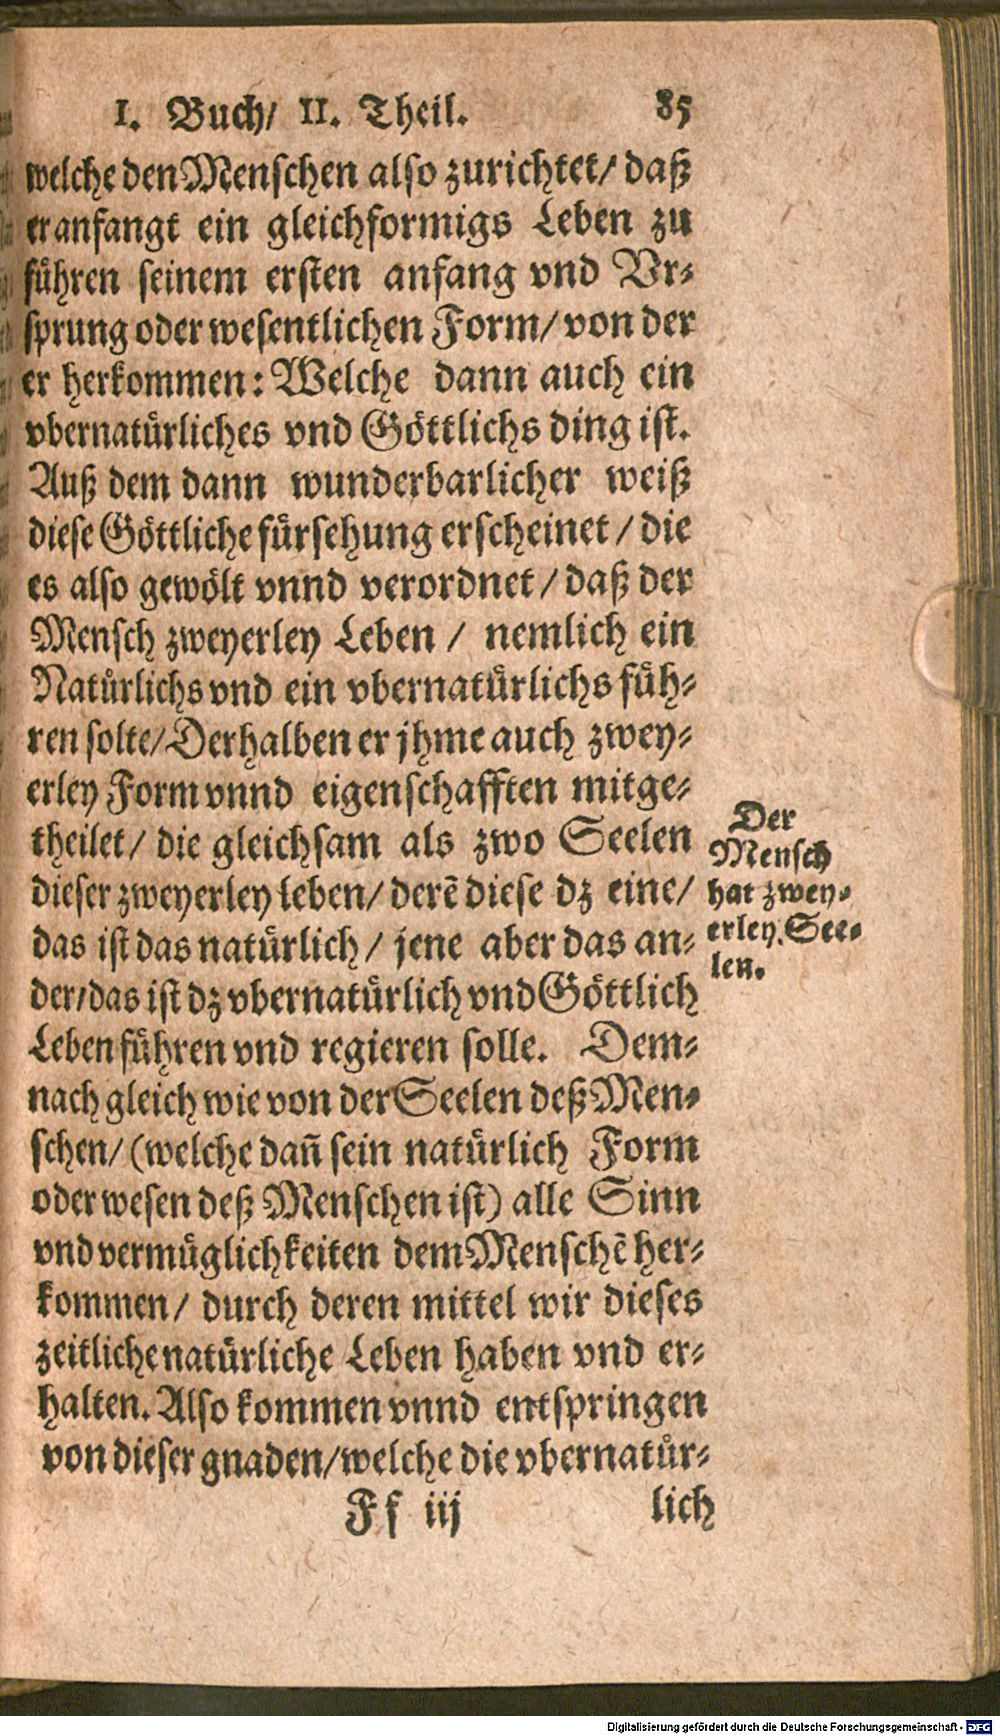 I. Buch/ II. Theil. 85
welche den Menschen also zurichtet/ daß
er anfangt ein gleichformigs Leben zu
führen seinem ersten anfang vnd Vr-
sprung oder wesentlichen Form/ von der
er herkommen: Welche dann auch ein
vbernatürliches vnd Göttlichs ding ist.
Auß dem dann wunderbarlicher weiß
diese Göttliche fürsehung erscheinet / die
es also gewölt vnnd verordnet / daß der
Mensch zweyerley Leben / nemlich ein
Natürlichs vnd ein vbernatürlichs füh-
ren solte/ Derhalben er jhme auch zwey-
erley Form vnnd eigenschafften mitge-
theilet/ die gleichsam als zwo Seelen
dieser zweyerley leben/ derẽ diese dz eine/
das ist das natürlich / jene aber das an-
der/ das ist dz vbernatürlich vnd Göttlich
Leben führen vnd regieren solle. Dem-
nach gleich wie von der Seelen deß Men-
schen/ (welche dañ sein natürlich Form
oder wesen deß Menschen ist) alle Sinn
vnd vermüglichkeiten dem Menschẽ her-
kommen/ durch deren mittel wir dieses
zeitliche natürliche Leben haben vnd er-
halten. Also kommen vnnd entspringen
von dieser gnaden/ welche die vbernatür-
Ff iij lich
Der
Mensch
hat zwey-
erley See-
len.
Digitalisierung gefördert durch die Deutsche Forschungsgemeinschaft - DFG